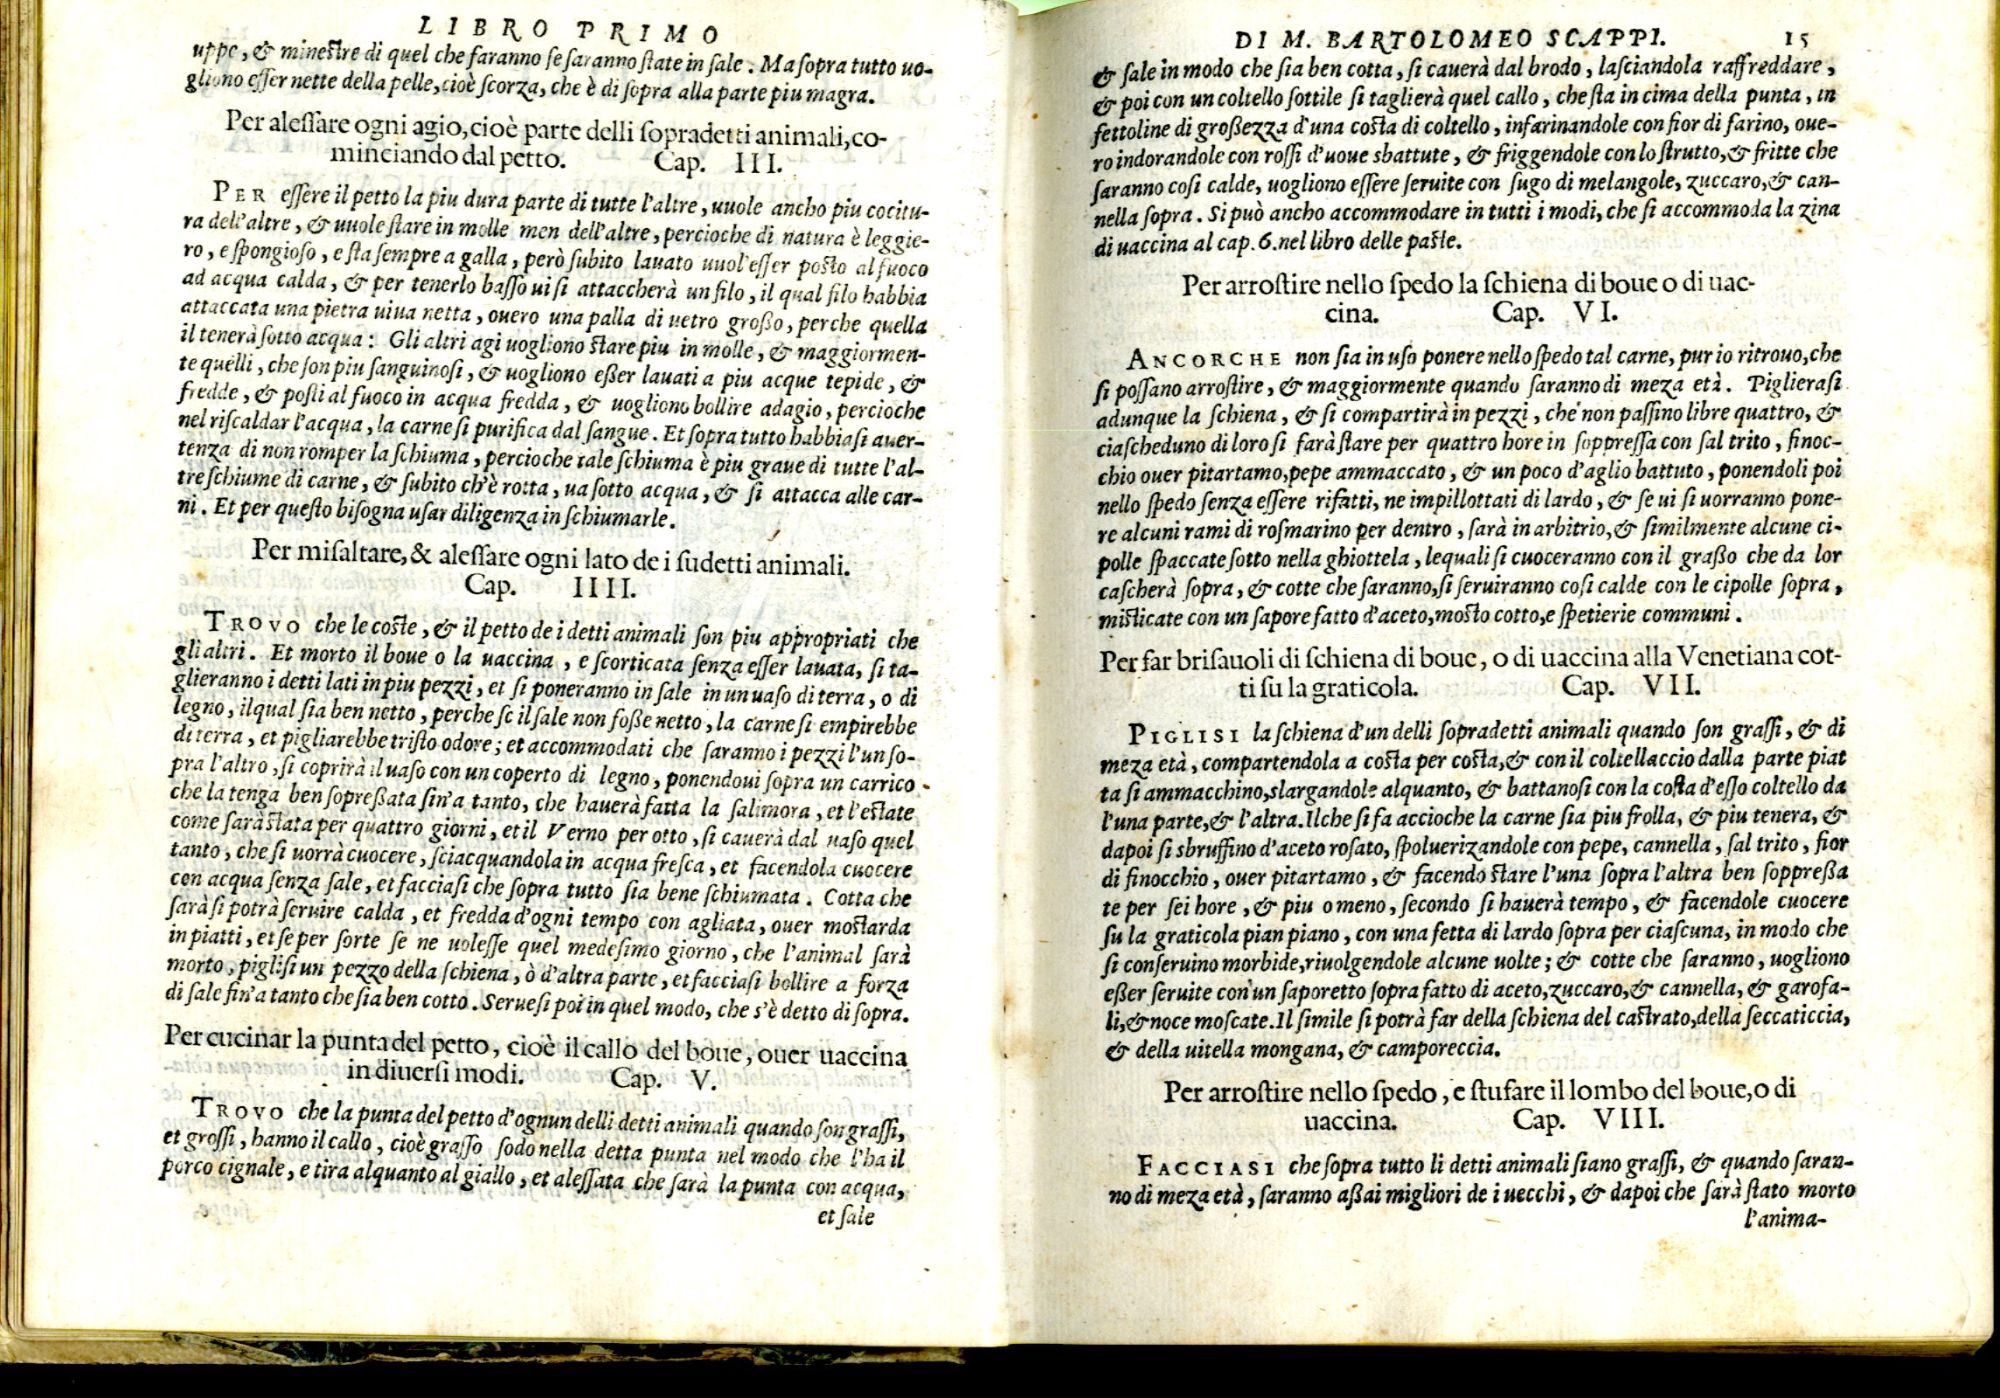 LIBRO PRIMO
uppe, & minestre di quel che faranno se saranno state in sale. Ma sopra tutto uo-
gliono esser nette della pelle, cioè scorza, che è di sopra alla parte piu magra.
Per alessare ogni agio, cioè parte delli sopradetti animali, co-
minciando dal petto. Cap. III.
PER essere il petto la piu dura parte di tutte l'altre, uuole ancho piu cocitu-
ra dell'altre, & uuole stare in molle men dell'altre, percioche di natura è leggie-
ro, e spongioso, e sta sempre a galla, però subito lauato uuol'esser posto al fuoco
ad acqua calda, & per tenerlo basso ui si attaccherà un filo, il qual filo habbia
attaccata una pietra uiua netta, ouero una palla di uetro großo, perche quella
il tenerà sotto acqua: Gli altri agi uogliono stare piu in molle, & maggiormen-
te quelli, che son piu sanguinosi, & uogliono eßer lauati a piu acque tepide, &
fredde, & posti al fuoco in acqua fredda, & uogliono bollire adagio, percioche
nel riscaldar l'acqua, la carne si purifica dal sangue. Et sopra tutto habbiasi auer-
tenza di non romper la schiuma, percioche tale schiuma è piu graue di tutte l'al-
tre schiume di carne, & subito ch'è rotta, ua sotto acqua, & si attacca alle car-
ni. Et per questo bisogna usar diligenza in schiumarle.
Per misaltare, & alessare ogni lato de i sudetti animali.
Cap. IIII.
TROVO che le coste, & il petto de i detti animali son piu appropriati che
gli altri. Et morto il boue o la uaccina, e scorticata senza esser lauata, si ta-
glieranno i detti lati in piu pezzi, et si poneranno in sale in un uaso di terra, o di
legno, ilqual sia ben netto, perche se il sale non foße netto, la carne si empirebbe
di terra, et pigliarebbe tristo odore; et accommodati che saranno i pezzi l'un so-
pra l'altro, si coprirà il uaso con un coperto di legno, ponendoui sopra un carrico
che la tenga ben sopreßata sin'a tanto, che hauerà fatta la salimora, et l'estate
come sarà stata per quattro giorni, et il Verno per otto, si cauerà dal uaso quel
tanto, che si uorrà cuocere, sciacquandola in acqua fresca, et facendola cuocere
con acqua senza sale, et facciasi che sopra tutto sia bene schiumata. Cotta che
sarà si potrà seruire calda, et fredda d'ogni tempo con agliata, ouer mostarda
in piatti, et se per sorte se ne uolesse quel medesimo giorno, che l'animal sarà
morto, piglisi un pezzo della schiena, ò d'altra parte, et facciasi bollire a forza
di sale fin'a tanto che sia ben cotto. Seruesi poi in quel modo, che s'è detto di sopra.
Per cucinar la punta del petto, cioè il callo del boue, ouer uaccina
in diuersi modi. Cap. V.
TROVO che la punta del petto d'ognun delli detti animali quando son grassi,
et grossi, hanno il callo, cioè grasso sodo nella detta punta nel modo che l'ha il
porco cignale, e tira alquanto al giallo, et alessata che sarà la punta con acqua,
et sale
DI M. BARTOLOMEO SCAPPI. 15
& sale in modo che sia ben cotta, si cauerà dal brodo, lasciandola raffreddare,
& poi con un coltello sottile si taglierà quel callo, che sta in cima della punta, in
fettoline di großezza d'una costa di coltello, infarinandole con fior di farino, oue-
ro indorandole con rossi d'uoue sbattute, & friggendole con lo strutto, & fritte che
saranno cosi calde, uogliono essere seruite con sugo di melangole, zuccaro, & can-
nella sopra. Si può ancho accommodare in tutti i modi, che si accommoda la zina
di uaccina al cap. 6. nel libro delle paste.
Per arrostire nello spedo la schiena di boue o di uac-
cina. Cap. VI.
ANCORCHE non sia in uso ponere nello spedo tal carne, pur io ritrouo, che
si possano arrostire, & maggiormente quando saranno di meza età. Piglierasi
adunque la schiena, & si compartirà in pezzi, che non passino libre quattro, &
ciascheduno di loro si farà stare per quattro hore in soppressa con sal trito, finoc-
chio ouer pitartamo, pepe ammaccato, & un poco d'aglio battuto, ponendoli poi
nello spedo senza essere rifatti, ne impillottati di lardo, & se ui si uorranno pone-
re alcuni rami di rosmarino per dentro, sarà in arbitrio, & similmente alcune ci-
polle spaccate sotto nella ghiottela, lequali si cuoceranno con il graßo che da lor
cascherà sopra, & cotte che saranno, si seruiranno cosi calde con le cipolle sopra,
misticate con un sapore fatto d'aceto, mosto cotto, e spetierie communi.
Per far brisauoli di schiena di boue, o di uaccina alla Venetiana cot-
ti su la graticola. Cap. VII.
PIGLISI la schiena d'un delli sopradetti animali quando son grassi, & di
meza età, compartendola a costa per costa, & con il coltellaccio dalla parte piat
ta si ammacchino, slargandole alquanto, & battanosi con la costa d'esso coltello da
l'una parte, & l'altra. Ilche si fa accioche la carne sia piu frolla, & piu tenera, &
dapoi si sbruffino d'aceto rosato, spoluerizandole con pepe, cannella, sal trito, fior
di finocchio, ouer pitartamo, & facendo stare l'una sopra l'altra ben soppreßa
te per sei hore, & piu o meno, secondo si hauerà tempo, & facendole cuocere
su la graticola pian piano, con una fetta di lardo sopra per ciascuna, in modo che
si conseruino morbide, riuolgendole alcune uolte; & cotte che saranno, uogliono
eßer seruite con un saporetto sopra fatto di aceto, zuccaro, & cannella, & garofa-
li, & noce moscate. Il simile si potrà far della schiena del castrato, della seccaticcia,
& della uitella mongana, & camporeccia.
Per arrostire nello spedo, e stufare il lombo del boue, o di
uaccina. Cap. VIII.
FACCIASI che sopra tutto li detti animali siano grassi, & quando saran-
no di meza età, saranno aßai migliori de i uecchi, & dapoi che sarà stato morto
l'anima-